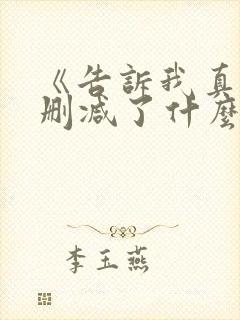 《告訴我真
刪減了什麼
李玉燕